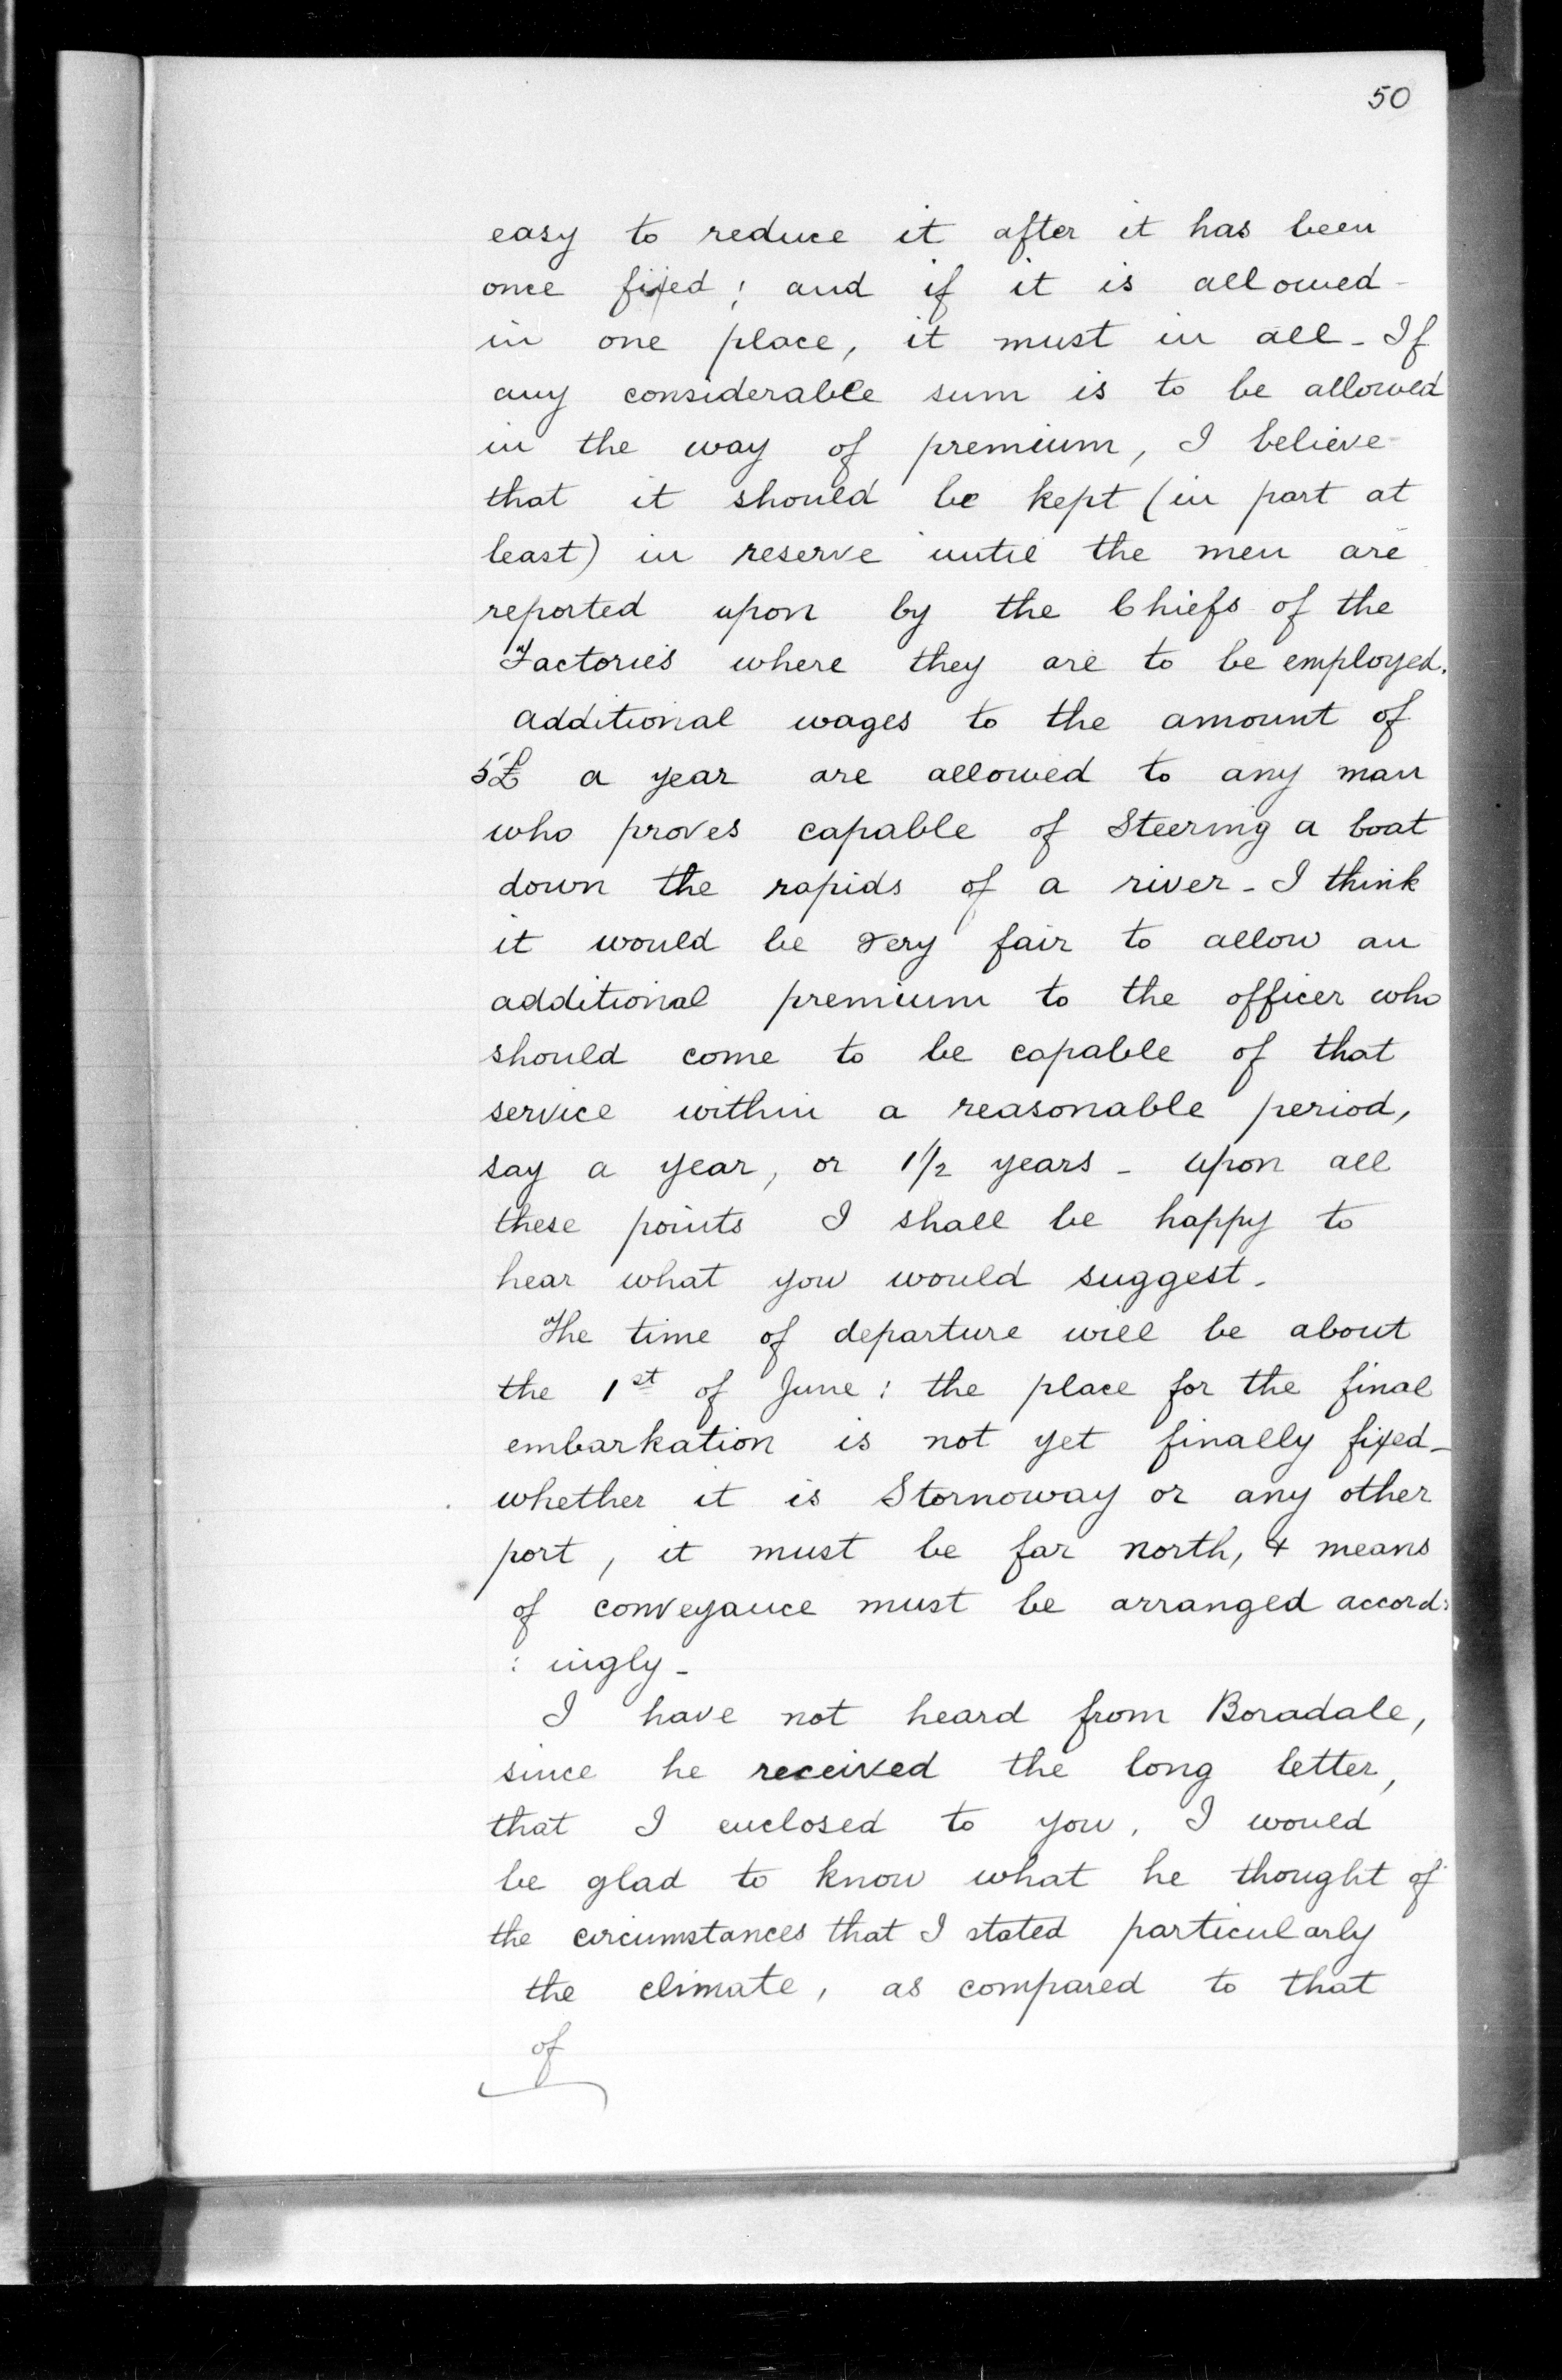 50
easy to reduce it after it has been
once fixed; and if it is allowed
in one place, it must in all - If
any considerable sum is to be allowed
in the way of premium, I believe
that it should be kept (in part at
least) in reserve until the men are
reported upon by the Chiefs of the
Factories where they are to be employed.
additional wages to the amount of
5£ a year are allowed to any man
who proves capable of Steering a boat
down the rapids of a river - I think
it would be very fair to allow an
additional premium to the officer who
should come to be capable of that
service within a reasonable period,
say a year, or 1 1/2 years - upon all
these points I shall be happy to
hear what you would suggest.
The time of departure will be about
the 1st of June: the place for the final
embarkation is not yet finally fixed -
whether it is Stornoway or any other
port, it must be far north, & means
of conveyance must be arranged accord:
: ingly -
I have not heard from Boradale,
since he received the long letter,
that I enclosed to you. I would
be glad to know what he thought of
the circumstances that I stated particularly
the climate, as compared to that
of